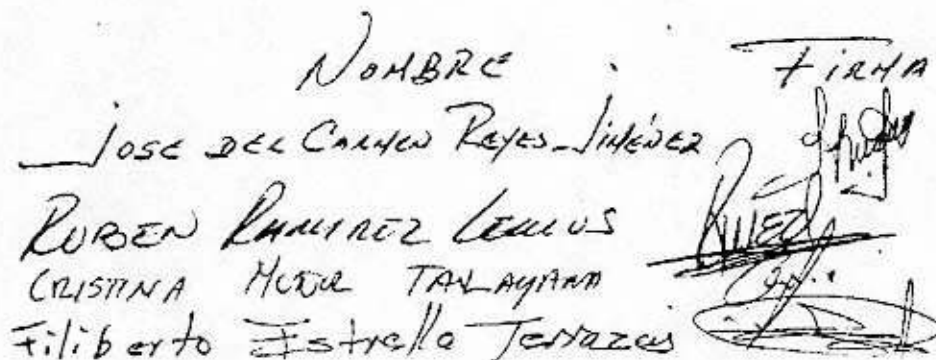 NOMBRE FIRMA
JOSE DEL CARMEN REYES JIMÉNEZ
RUBEN RAMIREZ LEMUS
CRISTINA TALAYANA
Filiberto Estrella Terrazas